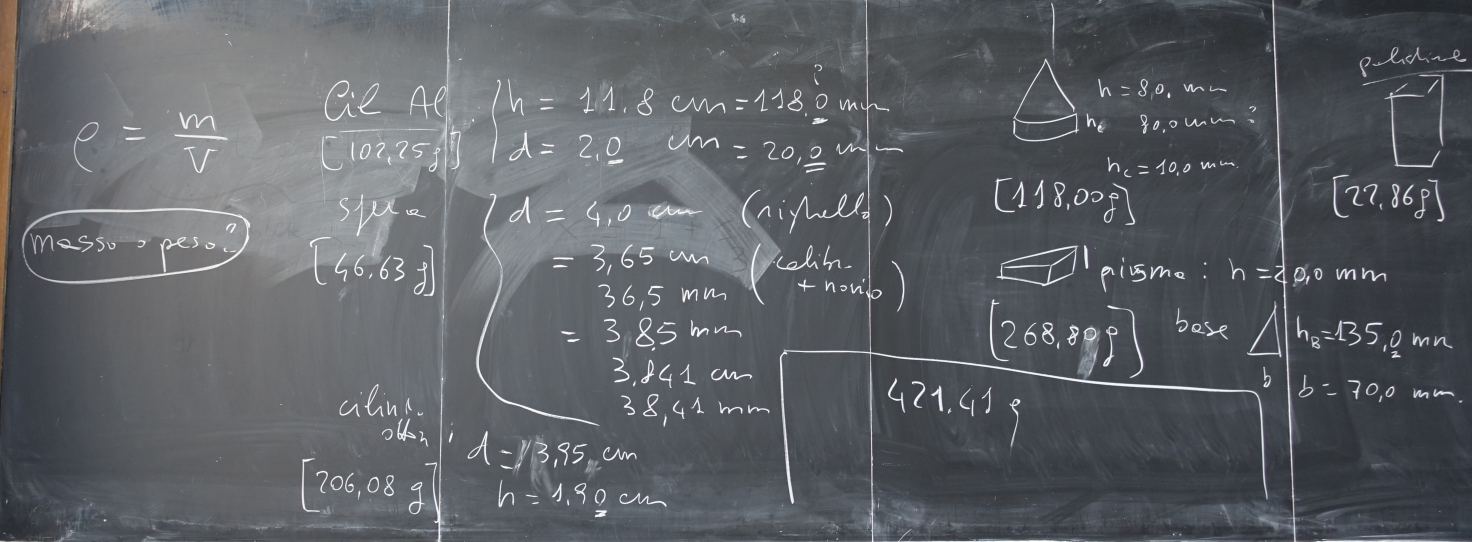 ρ = m/V
masso o peso?
Cil Al
[102,25g]
h = 11.8 cm = 118,0 mm ?
d = 2,0 cm = 20,0 mm
sfera
[46.63 g]
d = 4,0 cm (righello)
= 3,65 cm (calibr. + nonio)
36,5 mm
= 3 8,5 mm
3,841 cm
38,41 mm
cilind.
[206,08 g]
d = 3,95 cm
h = 1,90 cm
h = 8,0. mm
80,0 mm ?
hc
hc = 10,0 mm.
[118,00g]
prisma : h = 20,0 mm
[268,80g]
base
hB = 135,0 mm
b
b = 70,0 mm.
421.41 g
[22,86g]